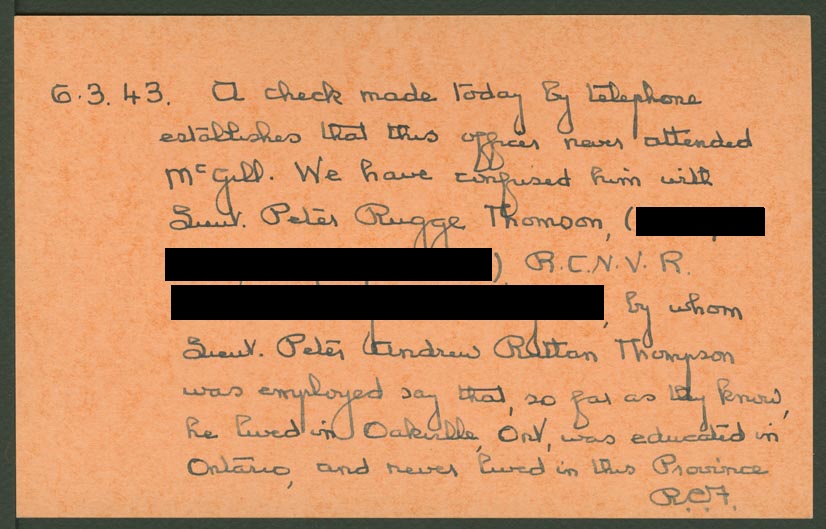 6.3.43. A check made today by telephone
establishes that this officer never attended
McGill. We have confused him with
Lieut. Peter Rugge Thomson, (
) R.C.N.V.R.
, by whom
Lieut. Peter Andrew Ruttan Thompson
was employed say that, so far as they know,
he lived in Oakville, Ont, was educated in
Ontario, and never lived in this Province
R.C.F.